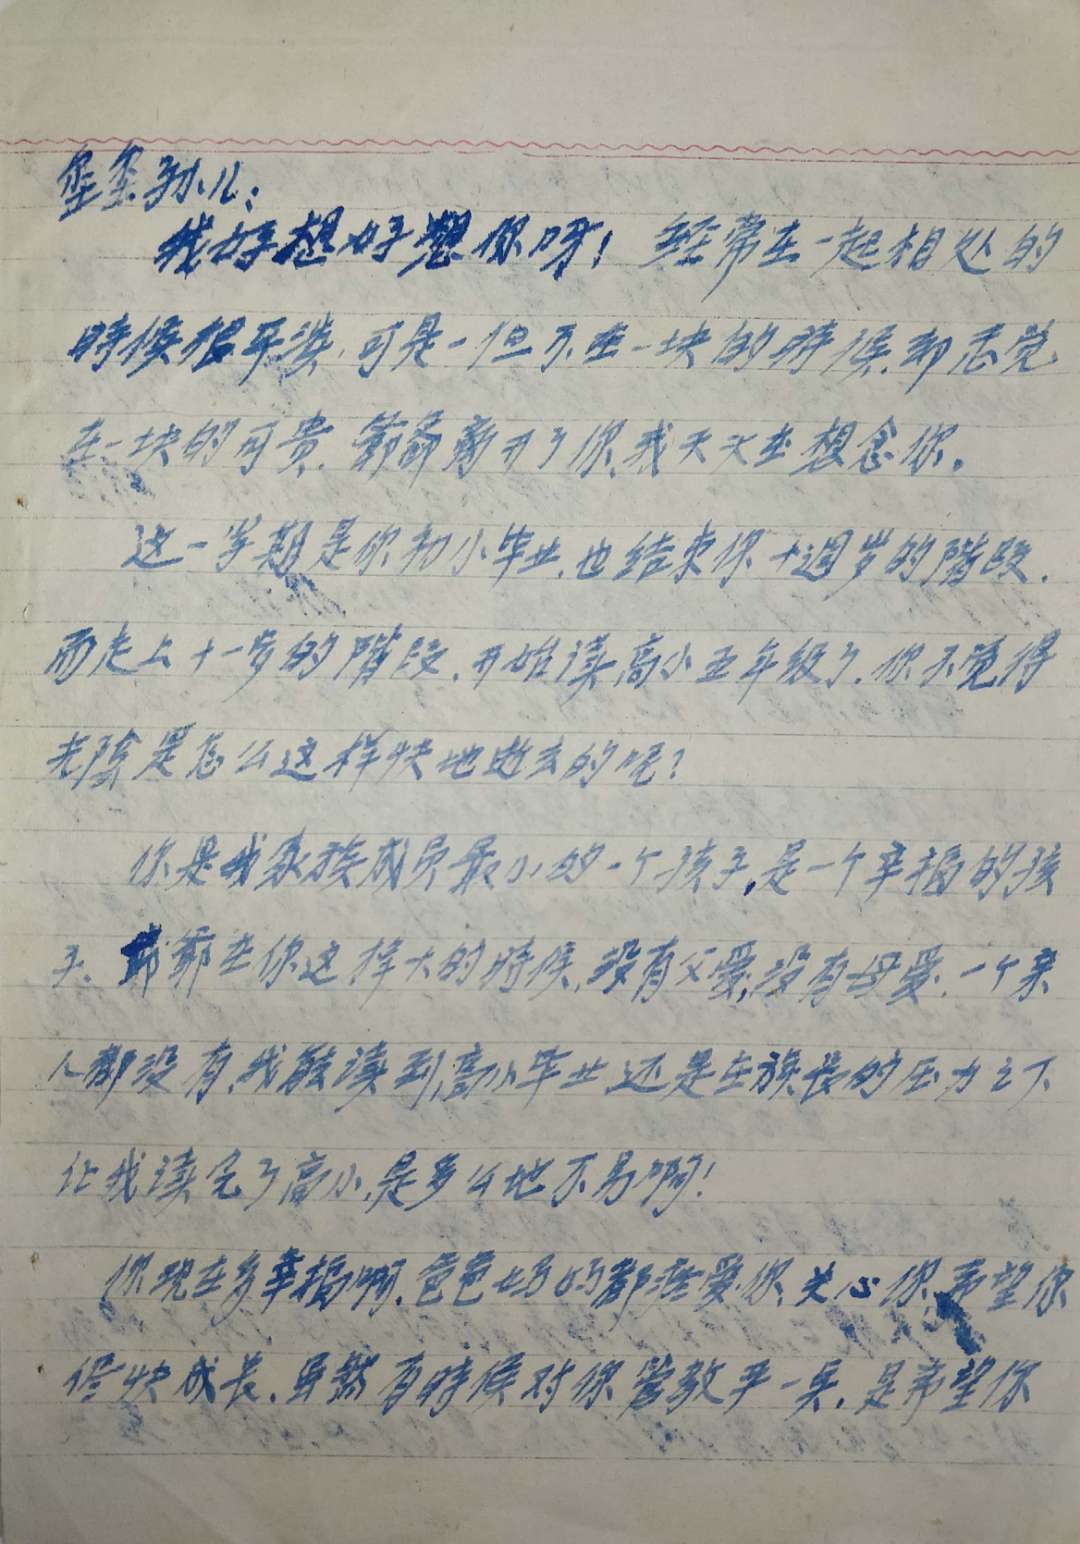 玺玺孙儿：
我好想好想你呀！经常在一起相处的
時候很平淡，可是一但不在一块的時候，却感觉
在一块的可贵，爺爺离开了你，我天天在想念你。
这一学期是你初小毕业，也结束你十週岁的階段，
而走上十一岁的階段，开始读高小五年级了，你不觉得
光陰是怎么这样快地逝去的呢？
你是我家族成员最小的一个孩子，是一个幸福的孩
子。爺爺在你这样大的時候，没有父爱，没有母爱，一个亲
人都没有，我能读到高小毕业还是在族長的压力之下
让我读完了高小，是多么地不易啊！
你现在多幸福啊，爸爸妈妈都疼爱你、关心你，希望你
愉快成長，虽然有時候对你管教严一点，是希望你